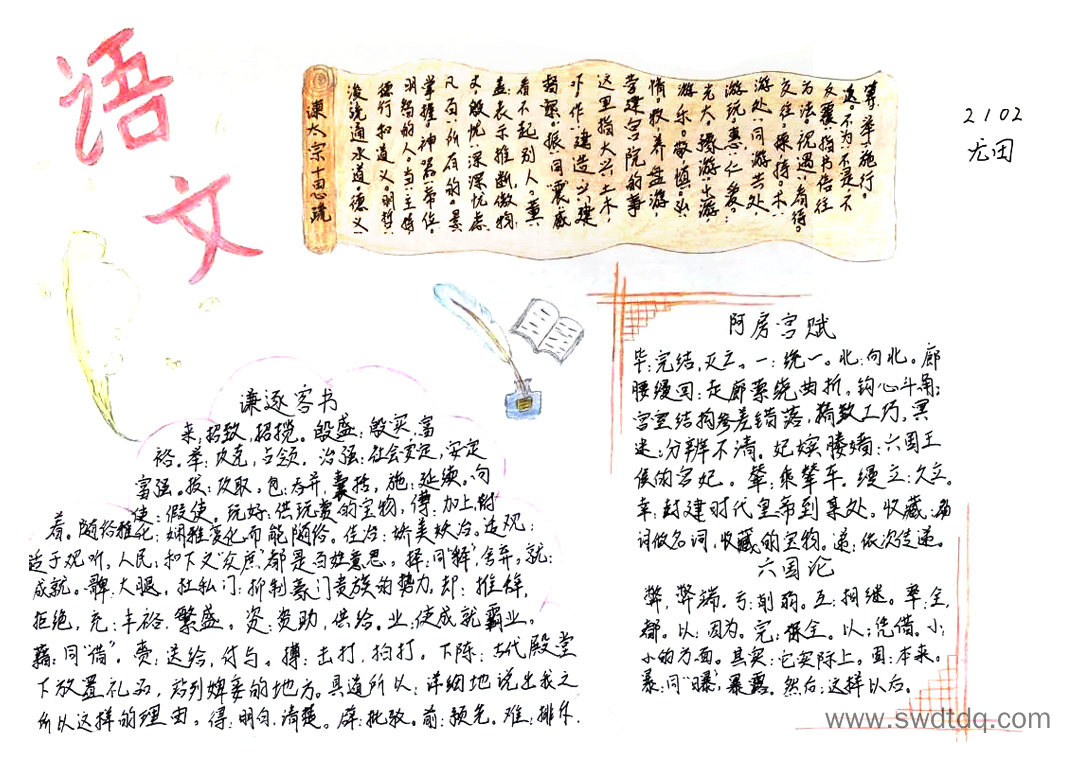 语
文
2102
尤田
谏太宗十思疏
浚:疏通水道。德义:
德行和道义。明哲:
明智的人。当:主持
掌握。神器:帝位。
凡百:所有的。景:
大。殷忧:深深忧虑
盖:表示推断。傲物:
看不起别人。董:
督察。振:同震,威
吓。作:建造,兴建
这里指大兴土木,
营建宫院的事
情。牧:养。盘游:
游乐。敬:慎。弘:
光大。豫游:出游,
游玩。惠:仁爱。
游处:同游共处
交往。秉:持。术:
方法。况遇:看待。
反覆:指书信往
返。不为:不是。不
举:施行。
谏逐客书
来:招致,招揽。殷盛:殷实,富
裕。举:攻克,占领。治强:社会安定,安定
富强。拔:攻取,包:吞并,囊括,施:延续。向
使:假使。玩好:供玩赏的宝物,傅:加上,附
着。随俗雅化:娴雅变化而能随俗。佳冶:娇美妖冶。适观:
适于观听,人民:和下文"众庶"都是百姓意思。择:同"释",舍弃,就:
成就。髀:大腿,杜私门:抑制豪门贵族的势力,却:推辞,
拒绝,充:丰裕,繁盛。资:资助,供给。业:使成就霸业。
藉:同"借"。赍:送给,付与。搏:击打,拍打。下陈:古代殿堂
下放置礼品,站列婢妾的地方。具道所以:详细地说出我之
所以这样的理由,得:明白,清楚。辟:批驳。前:预先。难:排斥,
阿房宫赋
毕:完结,灭亡。一:统一。北:向北。廊
腰缦回:走廊萦绕曲折。钩心斗角:
宫室结构参差错落,精致工巧,冥
迷:分辨不清。妃嫔媵嫱:六国王
侯的宫妃。辇:乘辇车。缦立:久立。
幸:封建时代皇帝到某处。收藏:动
词做名词,收藏的宝物。递:依次传递。
六国论
弊,弊端。亏:削弱。互:相继。率:全,
都。以:因为。完:保全。以:凭借。小:
小的方面。其实:它实际上。固:本来。
暴:同"曝",暴露。然后:这样以后。
www.swdtdq.com